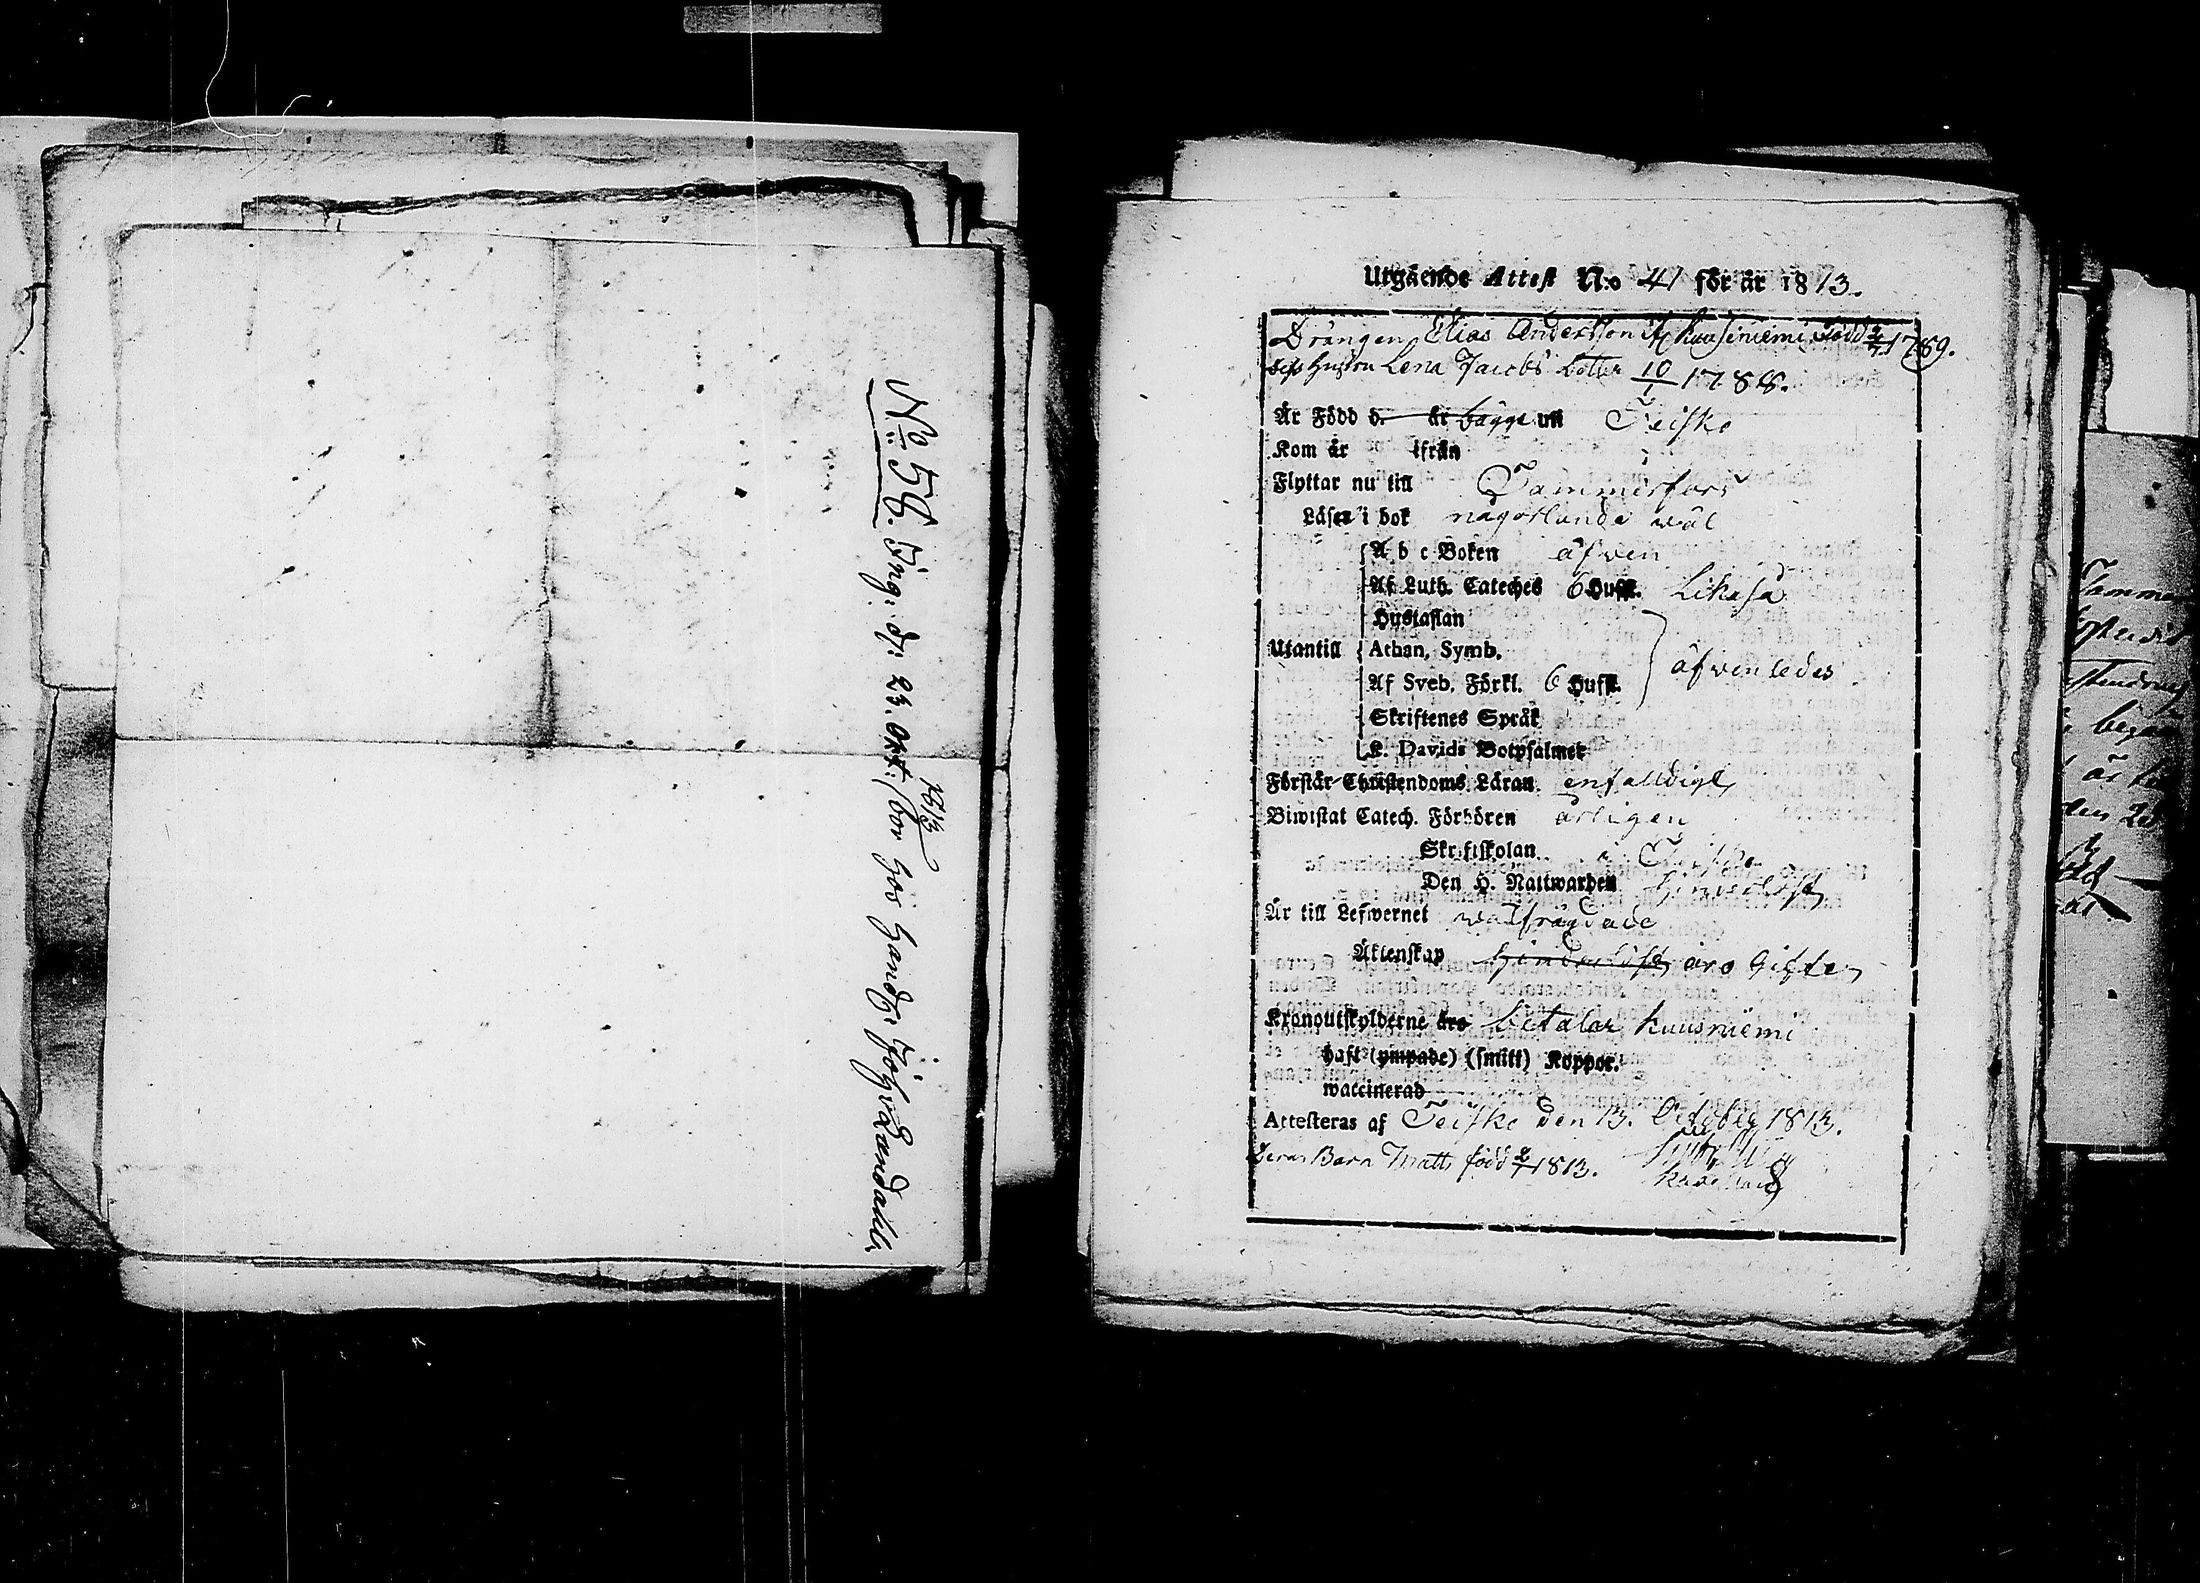 No 58. Ing: d: 23. Okt: 1813 / bor hos Handz: Joh: Randahl
Utgående Attest N:o 41 för år 1813.
Drängen Elias Andersson ifr. Kuusiniemi, född 2/7 1789.
dess Hustru Lena Jacobs dotter 10/1 1788.
Är Född d. år bägge uti Teisko
Kom år ifrån
Flyttar nu till Tammerfors
Läser i bok någorlunda wäl
A b c Boken äfwen
Af Luth. Cateches 6 Hufst. Likaså
Hustaflan
Utantill Athan. Symb.
äfwenledes
Af Sveb. Förkl. 6 Hufst.
Skriftenes Språk
K. Davids Botpsalmer
Förstår Christendoms Läran enfaldigt
Biwistat Catech. Förhören årligen
Skriftskolan i Teisko
Den H. Nattwarden
Är till Lefwernet wälfrägdade
Äktenskap äro Gifte
Kronoutskylderne äro betalar Kuusniemi
haft (ympade) (smitt) Koppor.
waccinerad
Attesteras af Teisko den 13. October 1813.
deras Barn Matts född 2/7 1813.